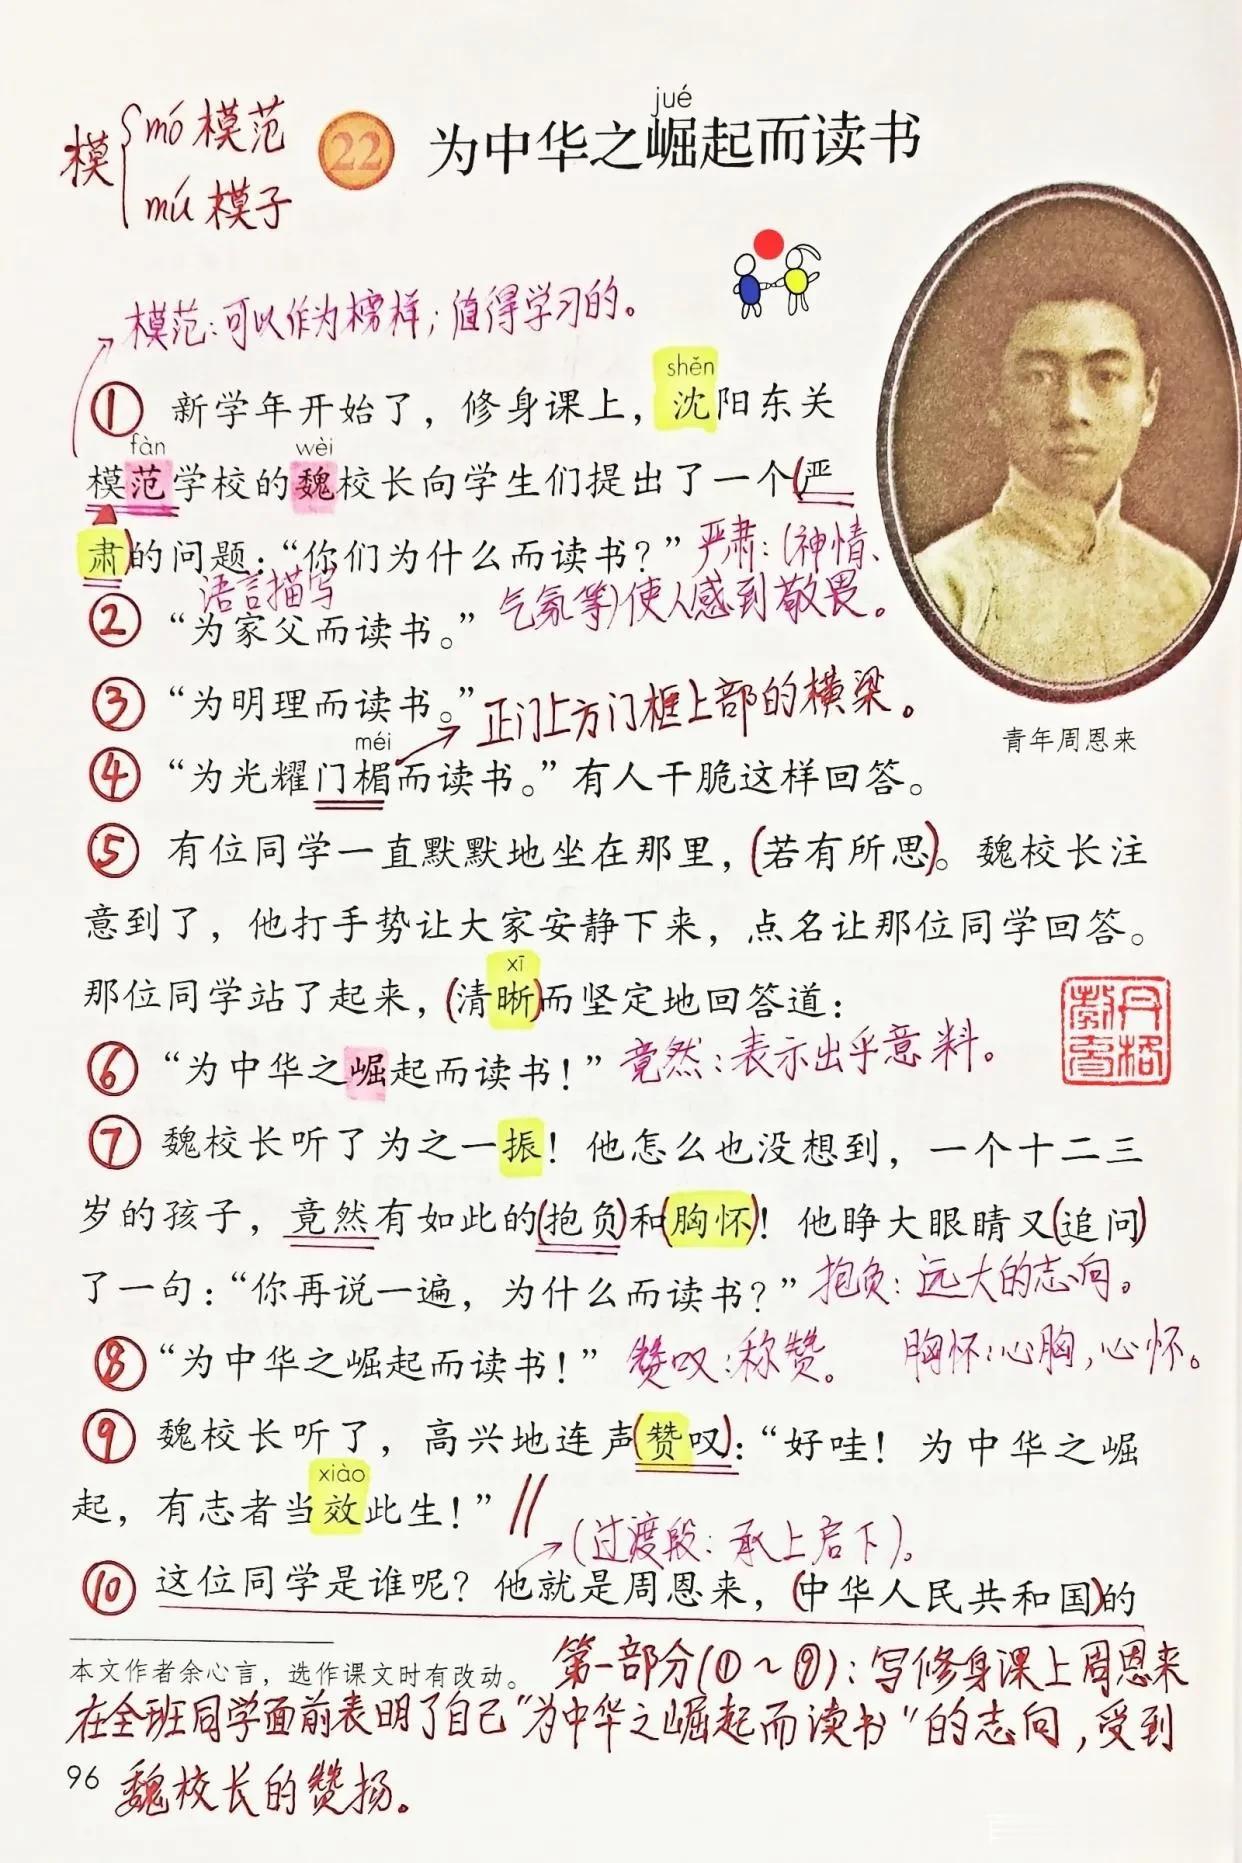 jué
模 mó 模范
mú 模子
22 为中华之崛起而读书
模范：可以作为榜样；值得学习的。
shěn
① 新学年开始了，修身课上，沈阳东关
fàn wèi
模范学校的魏校长向学生们提出了一个(严
肃)的问题：“你们为什么而读书？” 严肃：(神情、
语言描写
气氛等)使人感到敬畏。
② “为家父而读书。”
③ “为明理而读书。”
正门上方门框上部的横梁。
青年周恩来
méi
④ “为光耀门楣而读书。”有人干脆这样回答。
⑤ 有位同学一直默默地坐在那里，(若有所思)。魏校长注
意到了，他打手势让大家安静下来，点名让那位同学回答。
xī
那位同学站了起来，(清晰)而坚定地回答道：
丹格教育
⑥ “为中华之崛起而读书！” 竟然：表示出乎意料。
⑦ 魏校长听了为之一振！他怎么也没想到，一个十二三
岁的孩子，竟然有如此的(抱负)和(胸怀)！他睁大眼睛又(追问)
了一句：“你再说一遍，为什么而读书？” 抱负：远大的志向。
⑧ “为中华之崛起而读书！” 赞叹：称赞。 胸怀：心胸，心怀。
⑨ 魏校长听了，高兴地连声(赞叹)：“好哇！为中华之崛
xiào
起，有志者当效此生！” //
(过渡段：承上启下)。
⑩ 这位同学是谁呢？他就是周恩来，(中华人民共和国)的
本文作者余心言，选作课文时有改动。
第一部分(①～⑨)：写修身课上周恩来
在全班同学面前表明了自己“为中华之崛起而读书”的志向，受到
魏校长的赞扬。
96